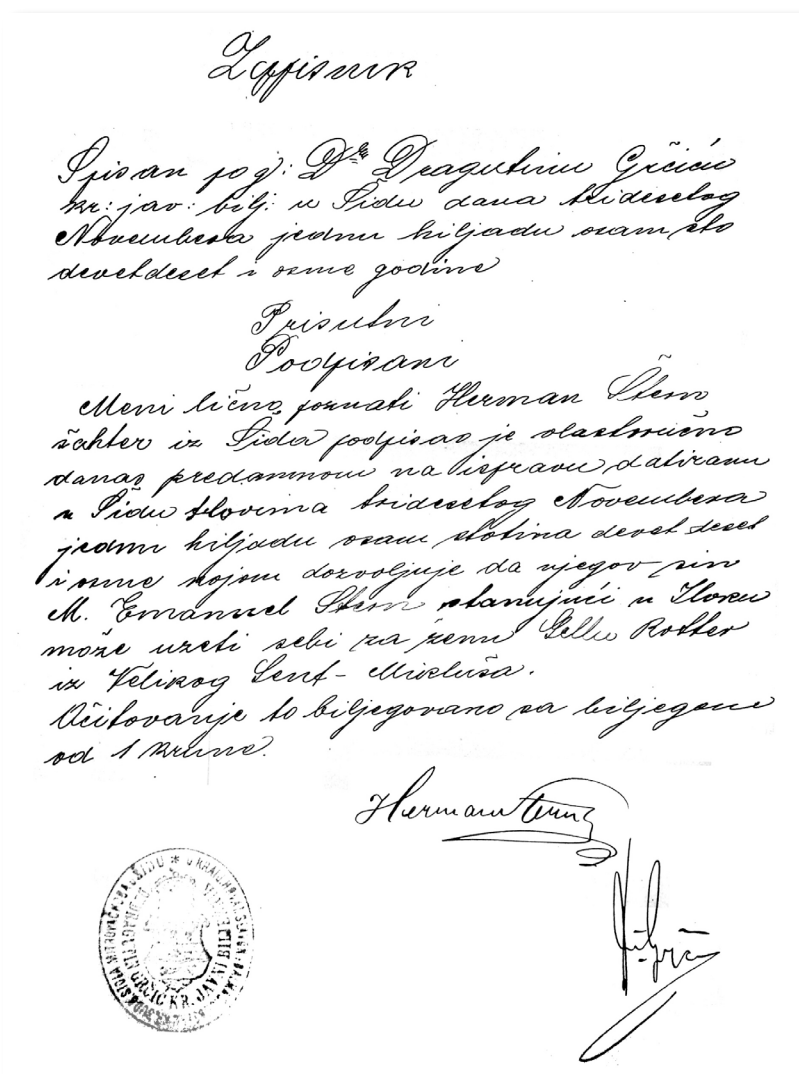 Zapisnik
Spisan po g: Dru Dragutinu Grčiću
kr: jav: bilj: u Šidu dana tridesetog
Novembera jednu hiljadu osam sto
devetdeset i osme godine
Prisutni
Podpisani
Meni lično poznati Herman Štern
šahter iz Šida podpisao je vlastoručno
danas predamnom na ispravu datiranu
u Šidu slovima tridesetog Novembera
jednu hiljadu osam stotina devetdeset
i osme kojom dozvoljuje da njegov sin
M. Emanuel Stern stanujući u Iloku
može uzeti sebi za ženu Gellu Rotter
iz Velikog Sent-Mikluša.
Očitovanje to biljegovano sa biljegom
od 1 krune.
Herman Stern
GRČIĆ KR. JAVNI BILJEŽNIK